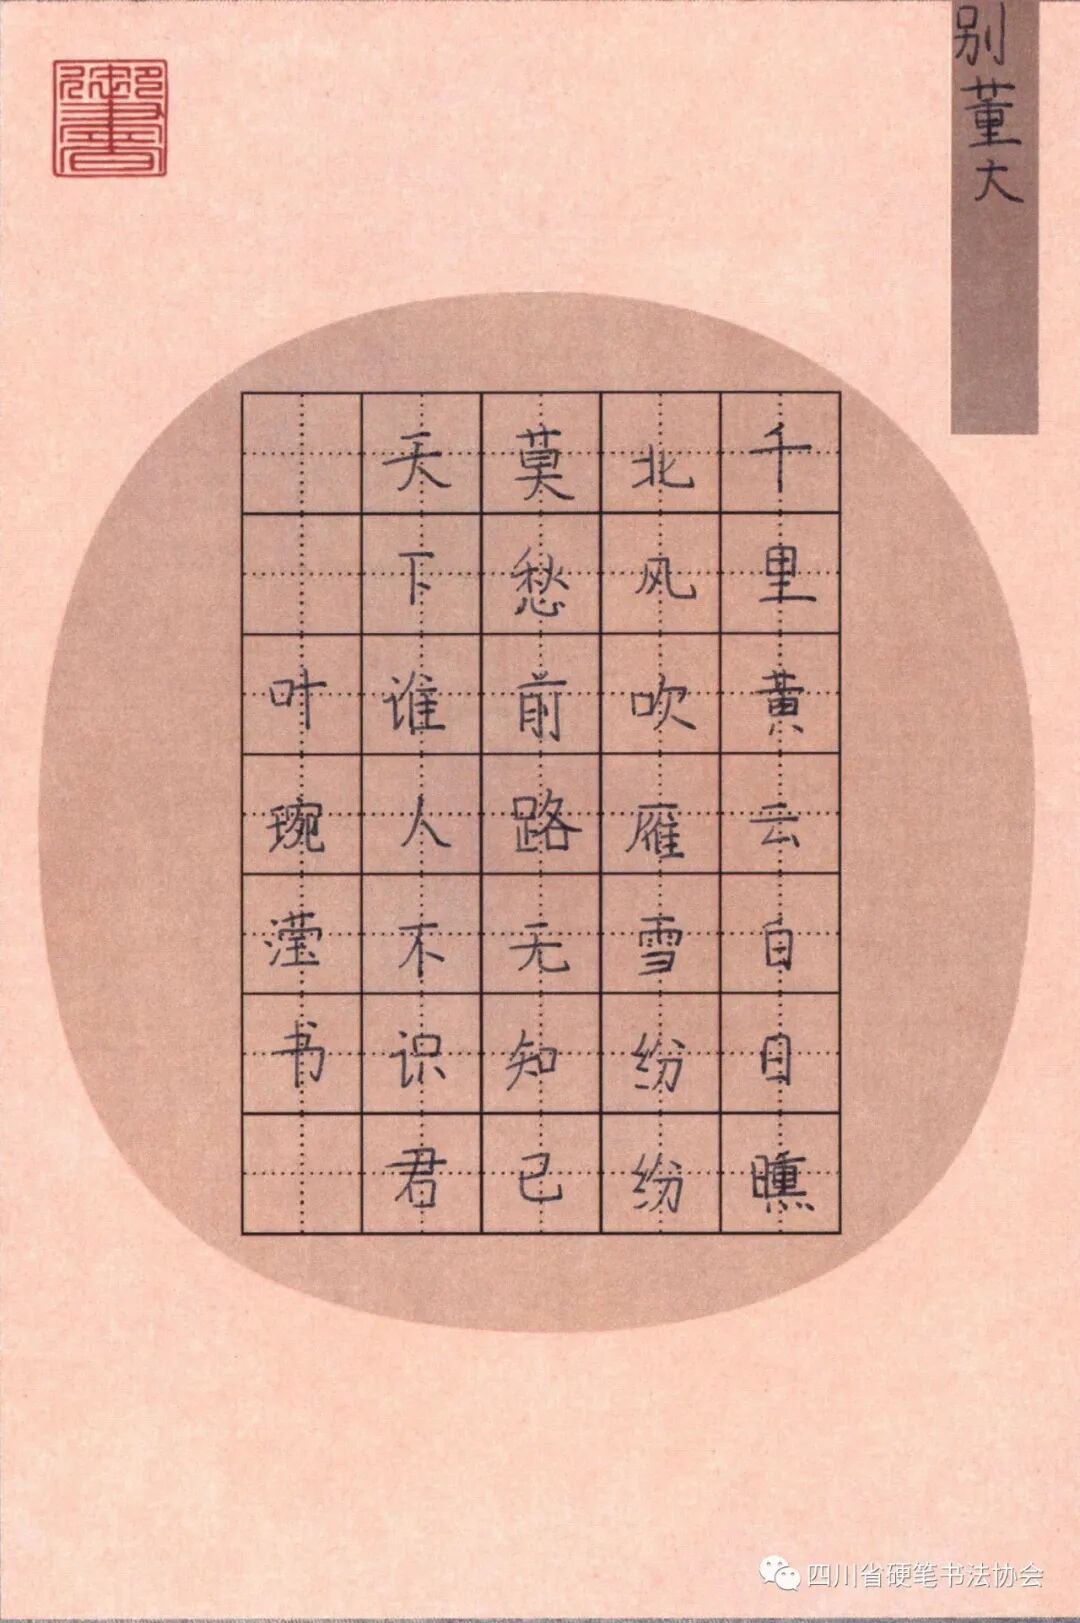 别董大
千里黄云白日曛
北风吹雁雪纷纷
莫愁前路无知已
天下谁人不识君
叶琬滢书
四川省硬笔书法协会